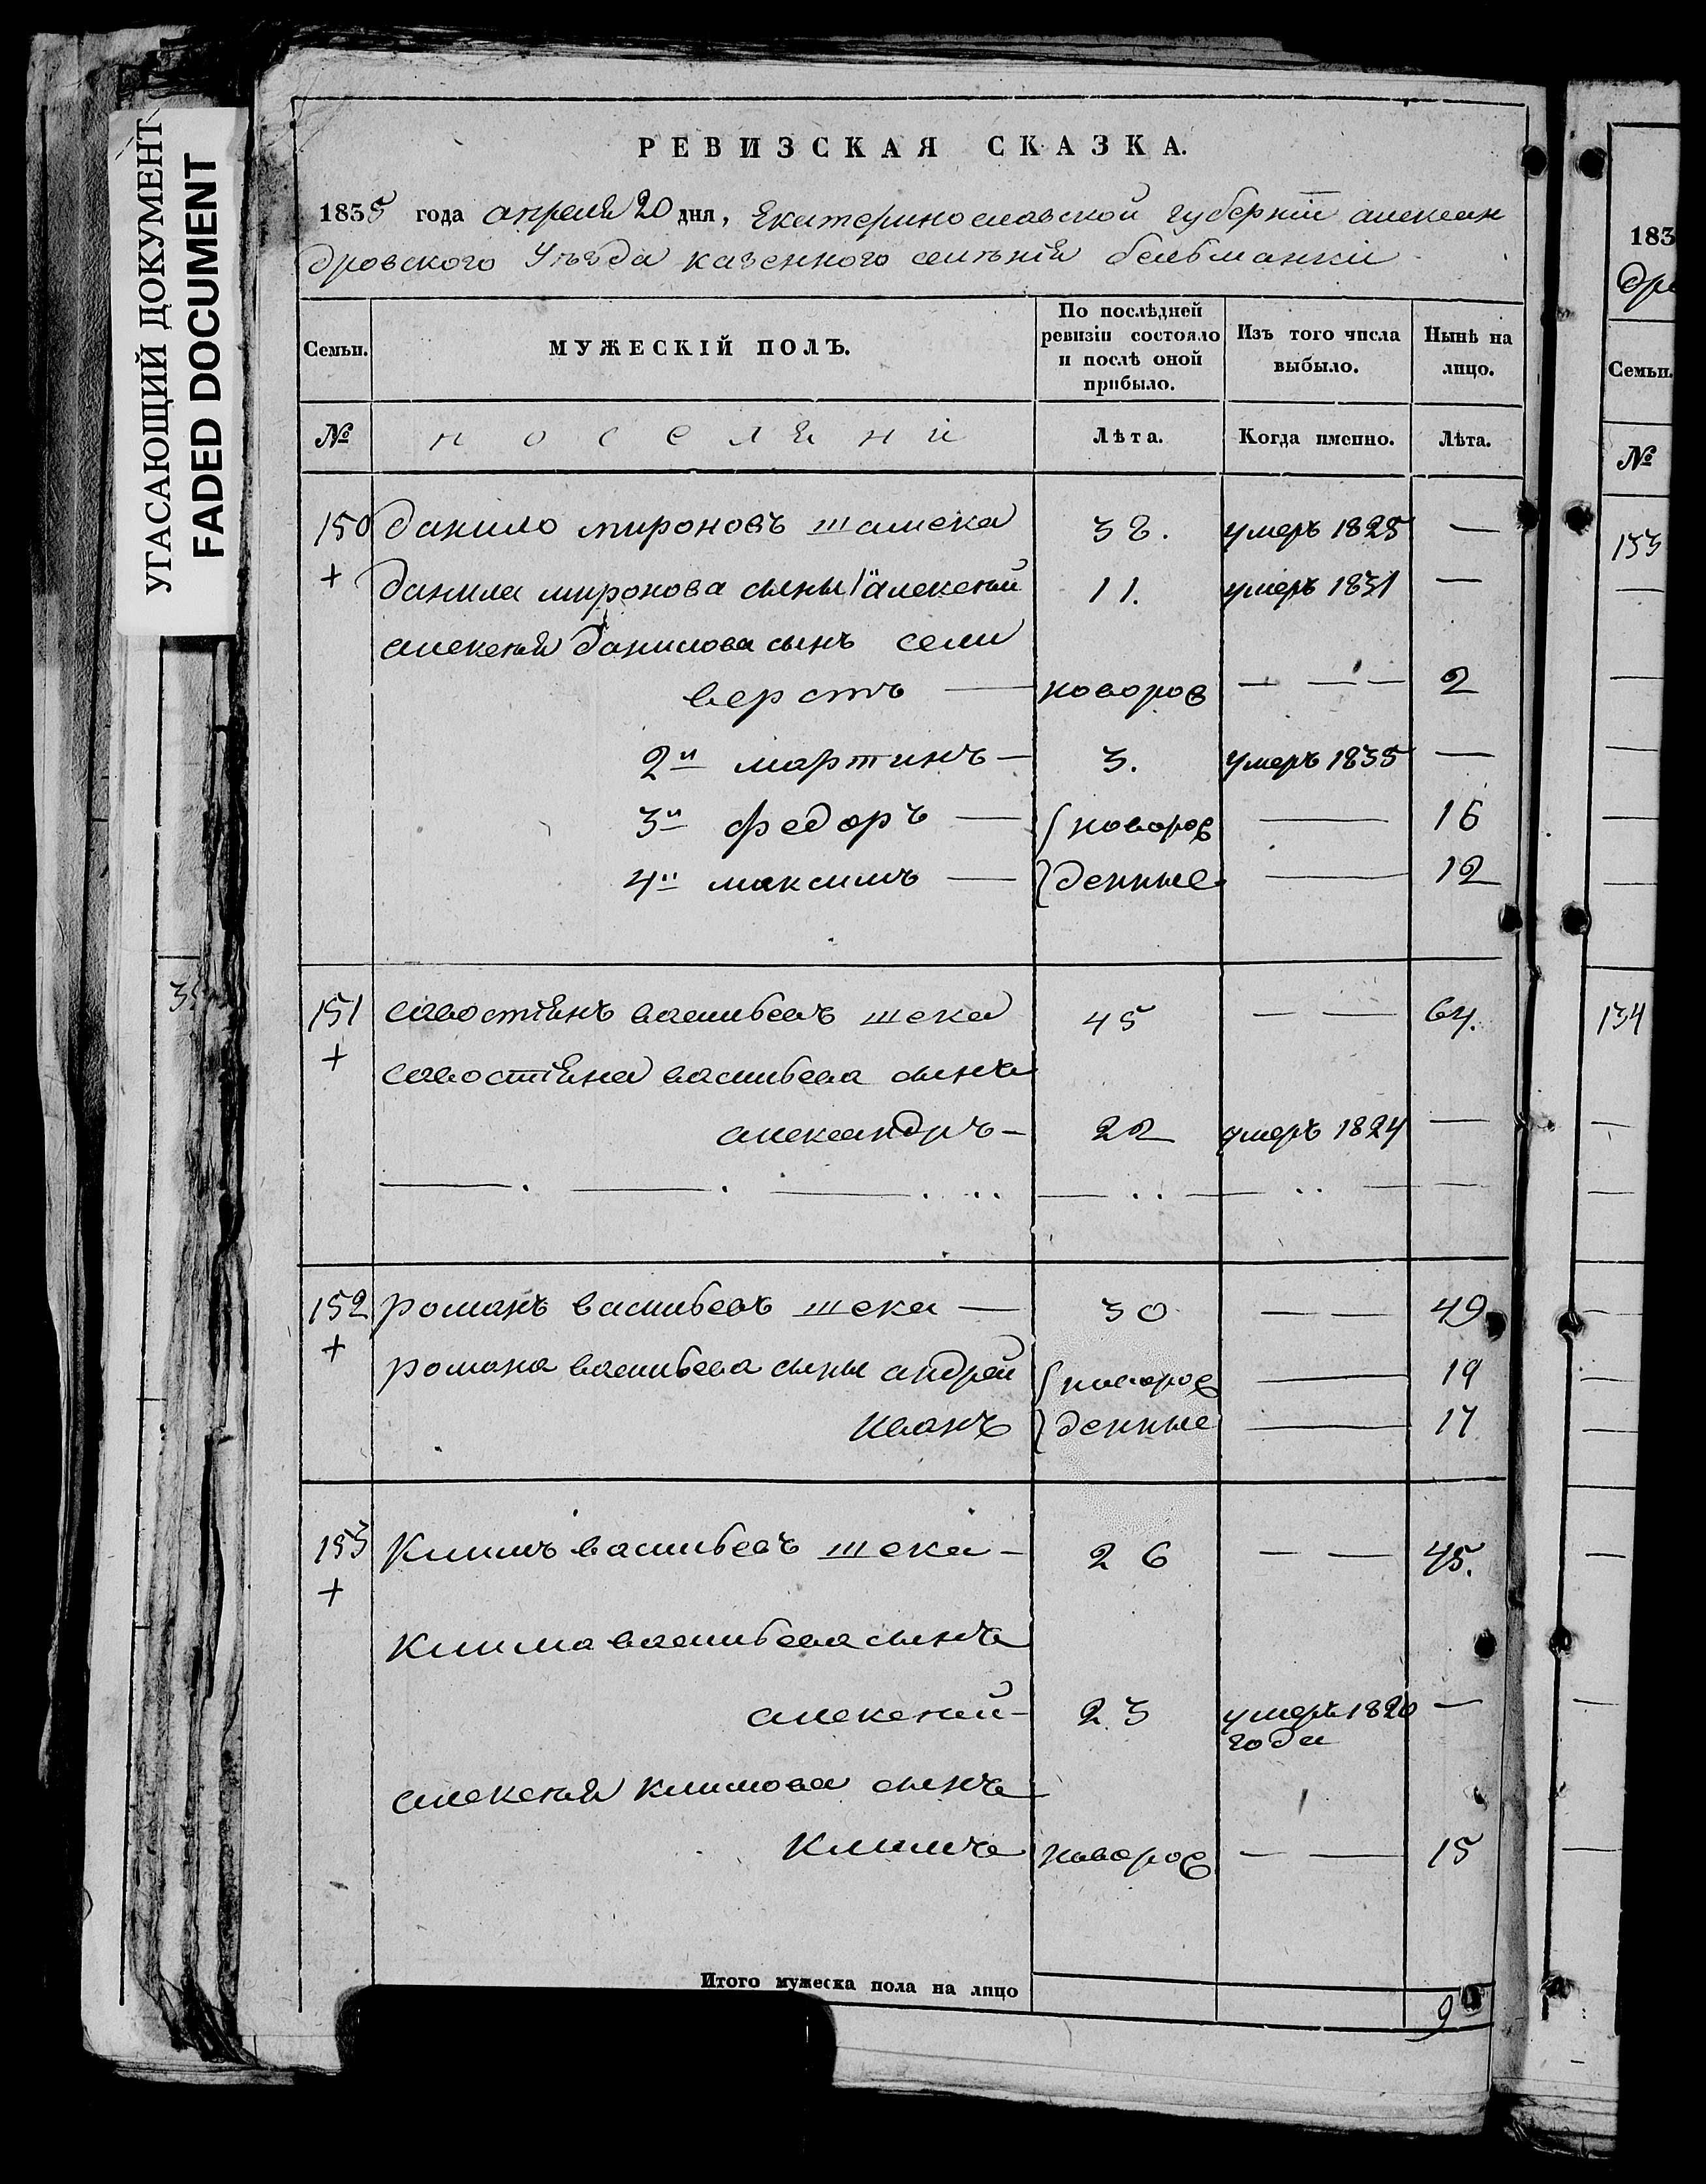 УГАСАЮЩИЙ ДОКУМЕНТ
FADED DOCUMENT
РЕВИЗСКАЯ СКАЗКА.
1835 года апреля 20 дня, Екатеринославской губернiи алексан
дровского Уѣзда казенного селѣнiя бельманки
Семьи. МУЖЕСКIЙ ПОЛЪ. По послѣдней ревизiи состояло и послѣ оной прибыло. Изъ того числа выбыло. Нынѣ на лицо.
№ поселяни Лѣта. Когда именно. Лѣта.
150 данило мироновъ шамека 38. умеръ 1825 —
+ данила миронова сыны 1й алексѣй 11. умеръ 1831 —
алексѣя данилова сынъ сели
верстъ — новорож — — — 2
2й мартинъ — 3. умеръ 1835 —
3й федоръ — новорож — 16
4й максимъ — денные — 12
151 савостiянъ васильевъ шека 45 — — 64.
+ савостiяна васильева сынъ
александръ — 22 умеръ 1824 —
152 романъ васильевъ шека — 30 — — 49
+ романа васильева сыны андрей новорож — 19
иванъ денные — 17
153 Климъ васильевъ шека — 26 — — 45.
+
Клима васильева сынъ
алексѣй — 23 умеръ 1820 —
года
алексѣя климова сынъ
Климъ новорож — — 15
Итого мужеска пола на лицо 9
183
дро
Семьи.
№
133
134